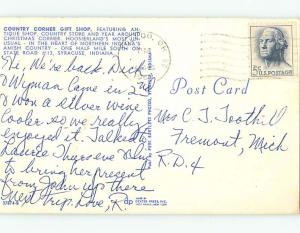 COUNTRY CORNER GIFT SHOP, FEATURING AN-
TIQUE SHOP, COUNTRY STORE AND YEAR AROUND
CHRISTMAS CORNER. HOOSIERLAND'S MOST UN-
USUAL - IN THE HEART OF NORTHERN INDIANA'S
AMISH COUNTRY - ONE HALF MILE SOUTH ON
STATE ROAD #13, SYRACUSE, INDIANA.
Hi, We're back. Dick
& Wyman Came in 2nd
& won a silver wine
Cooler so we really
enjoyed it. Talked to
Laurie Thurs eve
to bring her present
from John up there
next trip. Love, R.
5¢ U.S. POSTAGE
Post Card
Mrs C. J. Toothill
Fremont, Mich
R.D. 4